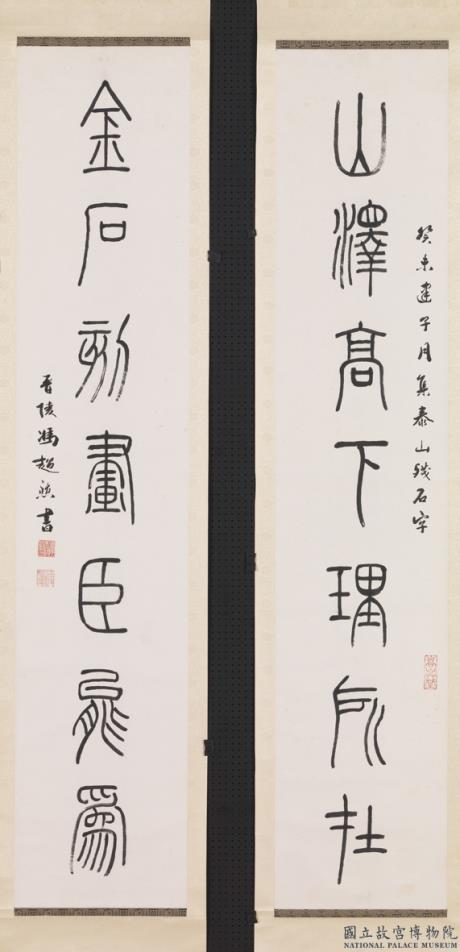 山澤高下理所在
癸未建子月集泰山殘石字
金石刻畫臣能為
晋陵馮超然書
國立故宮博物院
NATIONAL PALACE MUSEUM